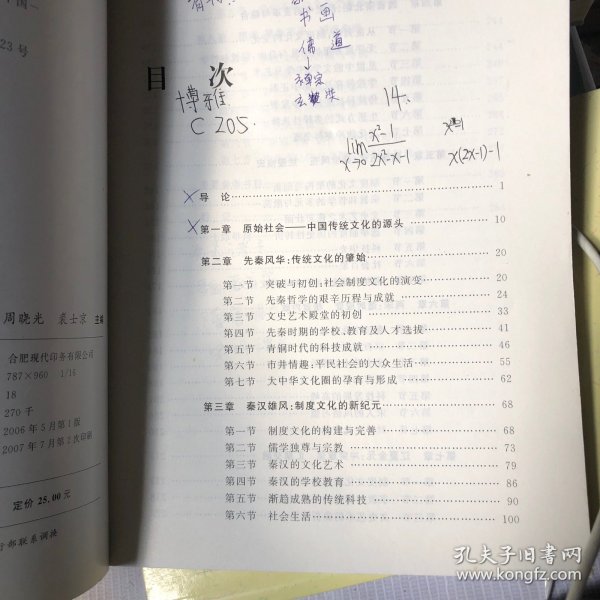 书画
儒 道
目 次
博雅
C 205.
14.
lim x→0 x²-1 / 2x²-x-1
x(2x-1)-1
导 论 1
第一章 原始社会——中国传统文化的源头 10
第二章 先秦风华:传统文化的肇始 20
第一节 突破与初创:社会制度文化的演变 20
第二节 先秦哲学的艰辛历程与成就 24
第三节 文史艺术殿堂的初创 33
第四节 先秦时期的学校、教育及人才选拔 41
第五节 青铜时代的科技成就 46
第六节 市井情趣:平民社会的大众生活 55
第七节 大中华文化圈的孕育与形成 62
第三章 秦汉雄风:制度文化的新纪元 68
第一节 制度文化的构建与完善 68
第二节 儒学独尊与宗教 73
第三节 秦汉的文化艺术 79
第四节 秦汉的学校教育 86
第五节 渐趋成熟的传统科技 90
第六节 社会生活 100
23 号
周晓光 裘士京 主编
合肥现代印务有限公司
787×960 1/16
18
270 千
2006 年 5 月第 1 版
2007 年 7 月第 2 次印刷
定价 25.00 元
部联系调换
孔夫子旧书网
www.kongfz.com